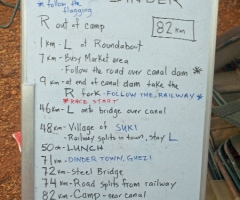 DINDER
* follow the
flagging
R out of camp
82 km
1 km - L at Roundabout
7 km - Busy Market area
Follow the road over canal dam *
9 km - at end of canal dam take the
R fork - FOLLOW THE RAILWAY *
* RACE START
46 km - L onto bridge over canal
48 km - Village of SUKI
- Railway splits in town, stay L
50 km - LUNCH
71 km - DINDER TOWN,
72 km - Steel Bridge
74 km - Road splits from railway
82 km - Camp - near canal